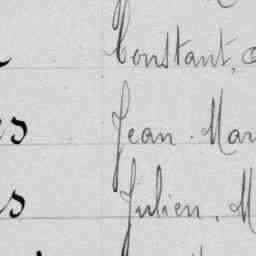 Constant,
es Jean. Mar
s Julien. M